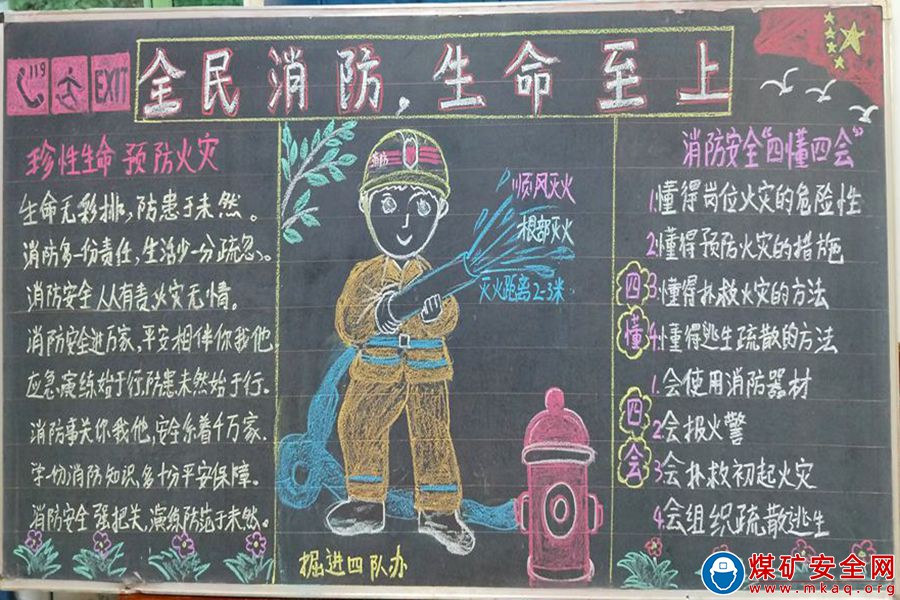 119
EXIT
全民消防，生命至上
珍性生命 预防火灾
生命无彩排，防患于未然。
消防多一份责任，生活少一分疏忽。
消防安全人人有责火灾无情。
消防安全进万家，平安相伴你我他
应急演练始于行.防患未然始于行.
消防事关你我他，安全系着千万家.
学一切消防知识，多十份平安保障。
消防安全 强把关，演练防范于未然。
消防
顺风灭火
根部灭火
灭火距离2-3米
掘进四队办
消防安全"四懂四会"
四懂
1.懂得岗位火灾的危险性
2.懂得预防火灾的措施
3.懂得扑救火灾的方法
4.懂得逃生疏散的方法
四会
1.会使用消防器材
2会报火警
3会扑救初起火灾
4.会组织疏散逃生
煤矿安全网
www.mkaq.org